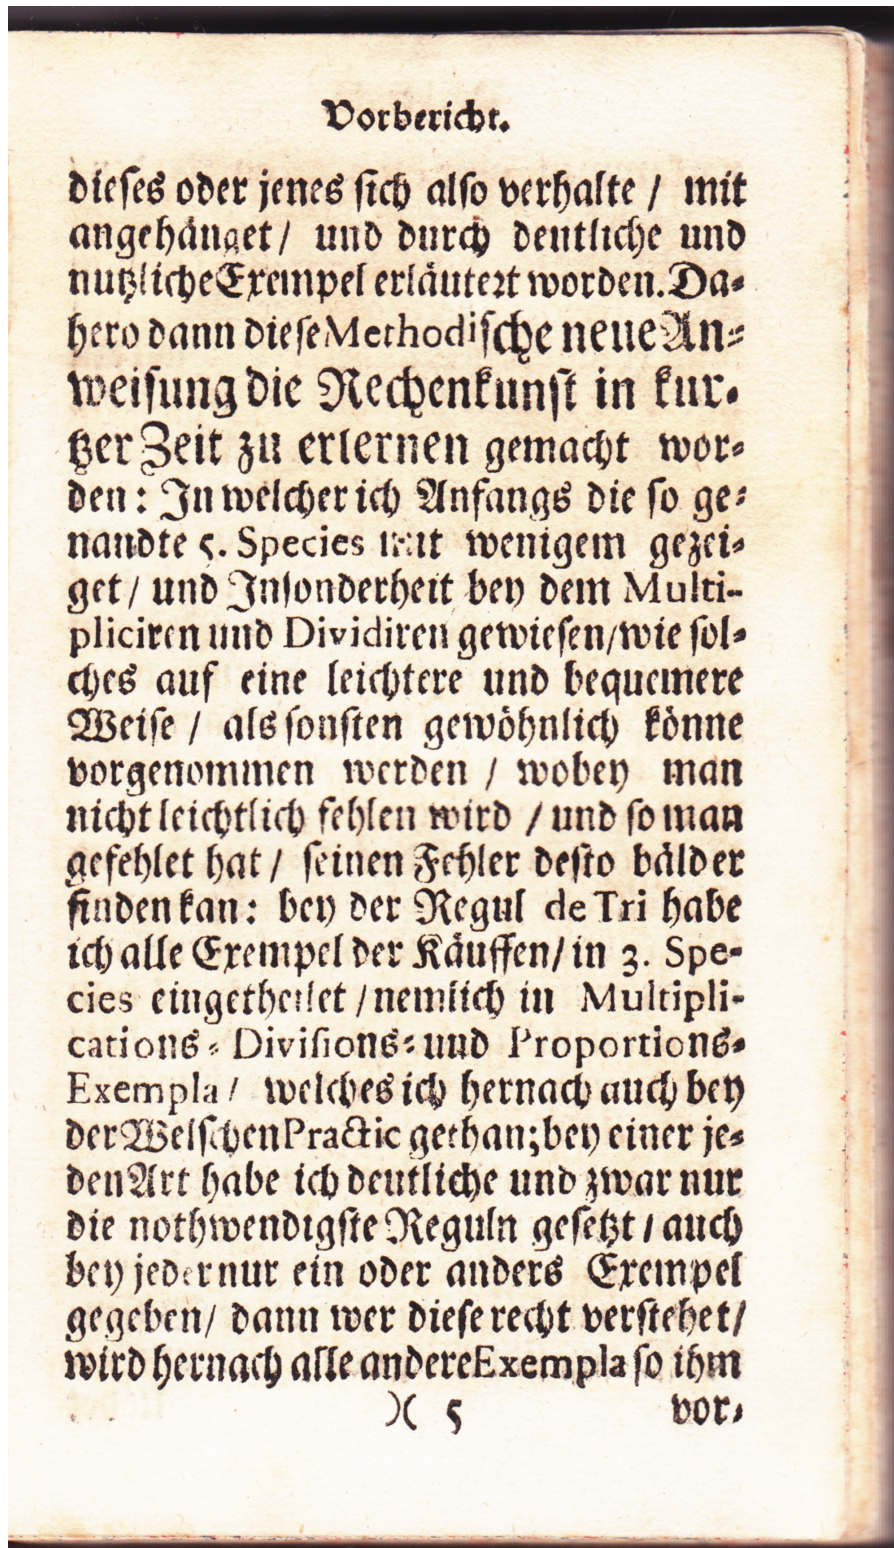 Vorbericht.
dieses oder jenes sich also verhalte / mit
angehänget / und durch deutliche und
nutzliche Exempel erläutert worden. Da-
hero dann diese Methodische neue An-
weisung die Rechenkunst in kur-
tzer Zeit zu erlernen gemacht wor-
den: In welcher ich Anfangs die so ge-
nandte 5. Species mit wenigem gezei-
get / und Insonderheit bey dem Multi-
pliciren und Dividiren gewiesen / wie sol-
ches auf eine leichtere und bequemere
Weise / als sonsten gewöhnlich könne
vorgenommen werden / wobey man
nicht leichtlich fehlen wird / und so man
gefehlet hat / seinen Fehler desto bälder
finden kan: bey der Regul de Tri habe
ich alle Exempel der Käuffen / in 3. Spe-
cies eingetheilet / nemlich in Multipli-
cations- Divisions- und Proportions-
Exempla / welches ich hernach auch bey
der Welschen Practic gethan; bey einer je-
den Art habe ich deutliche und zwar nur
die nothwendigste Reguln gesetzt / auch
bey jeder nur ein oder anders Exempel
gegeben / dann wer diese recht verstehet /
wird hernach alle andere Exempla so ihm
)( 5 vor-